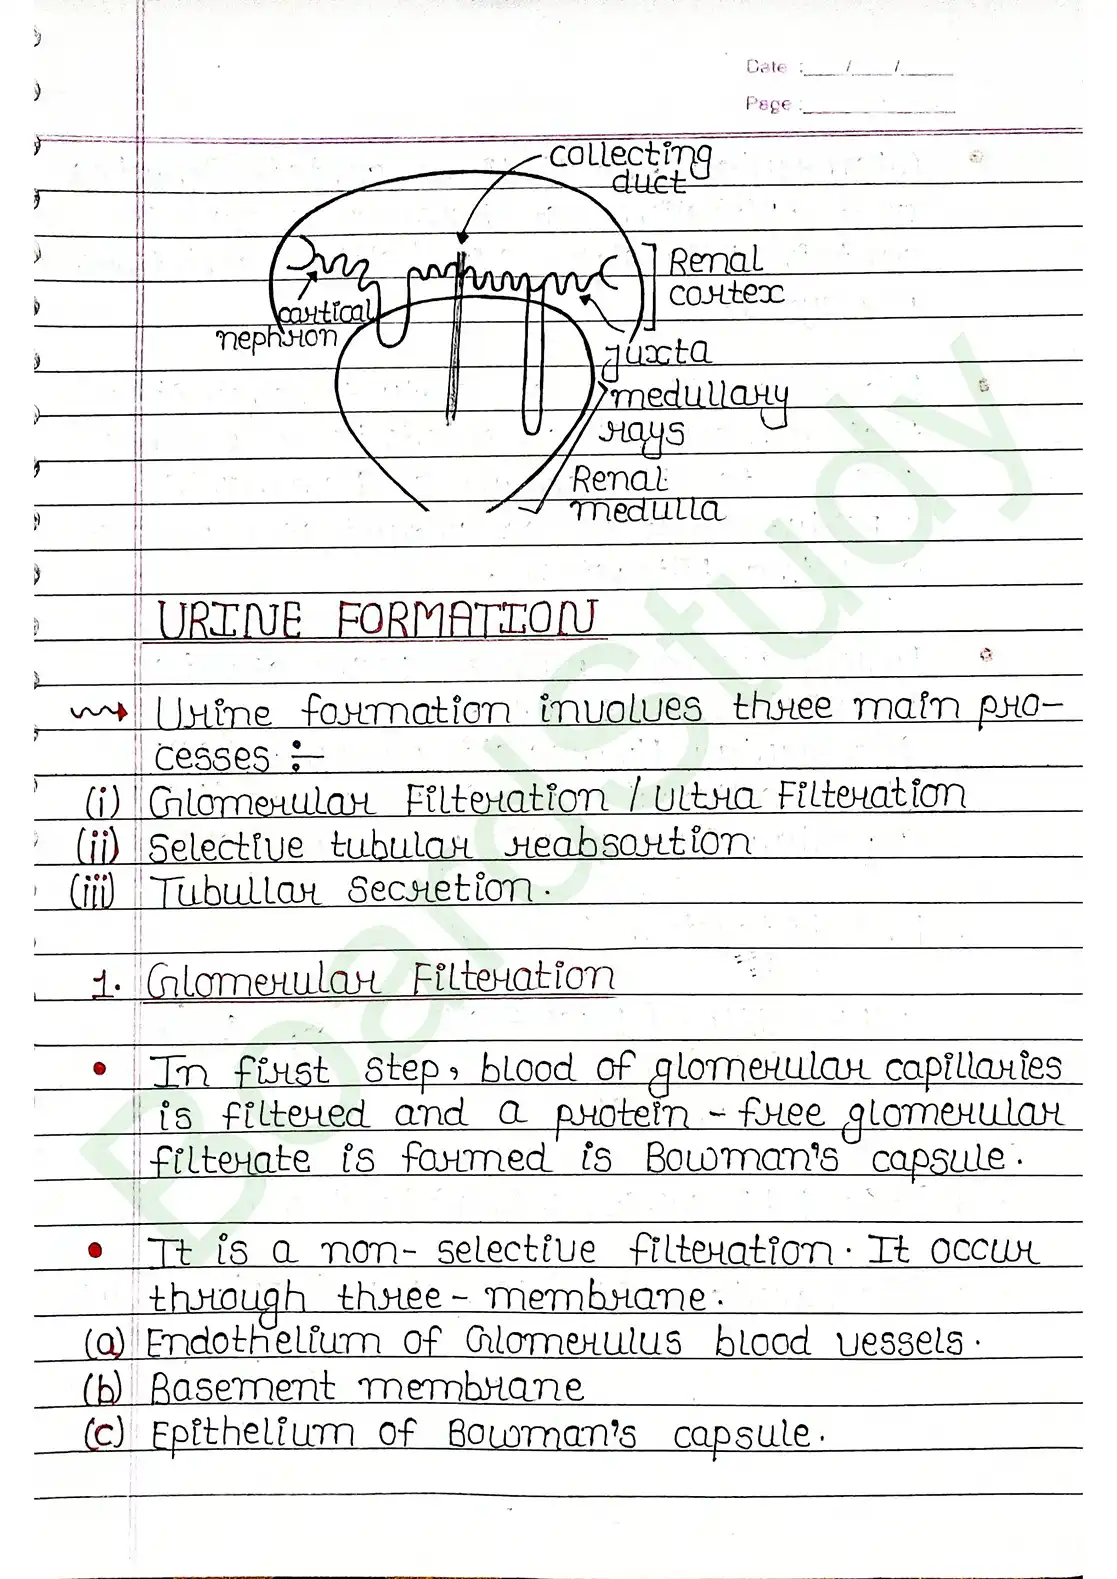 Date : / /
Page :
collecting
duct
Renal
cortex
cortical
nephron
juxta
medullary
rays
Renal
medulla
URINE FORMATION
Urine formation involves three main pro-
cesses :-
(i) Glomerular Filteration / Ultra Filteration
(ii) Selective tubular reabsortion
(iii) Tubullar Secretion.
1. Glomerular Filteration
• In first step, blood of glomerular capillaries
is filtered and a protein - free glomerular
filterate is formed is Bowman's capsule.
• It is a non- selective filteration. It occur
through three - membrane.
(a) Endothelium of Glomerulus blood vessels.
(b) Basement membrane
(c) Epithelium of Bowman's capsule.
BoardStudy